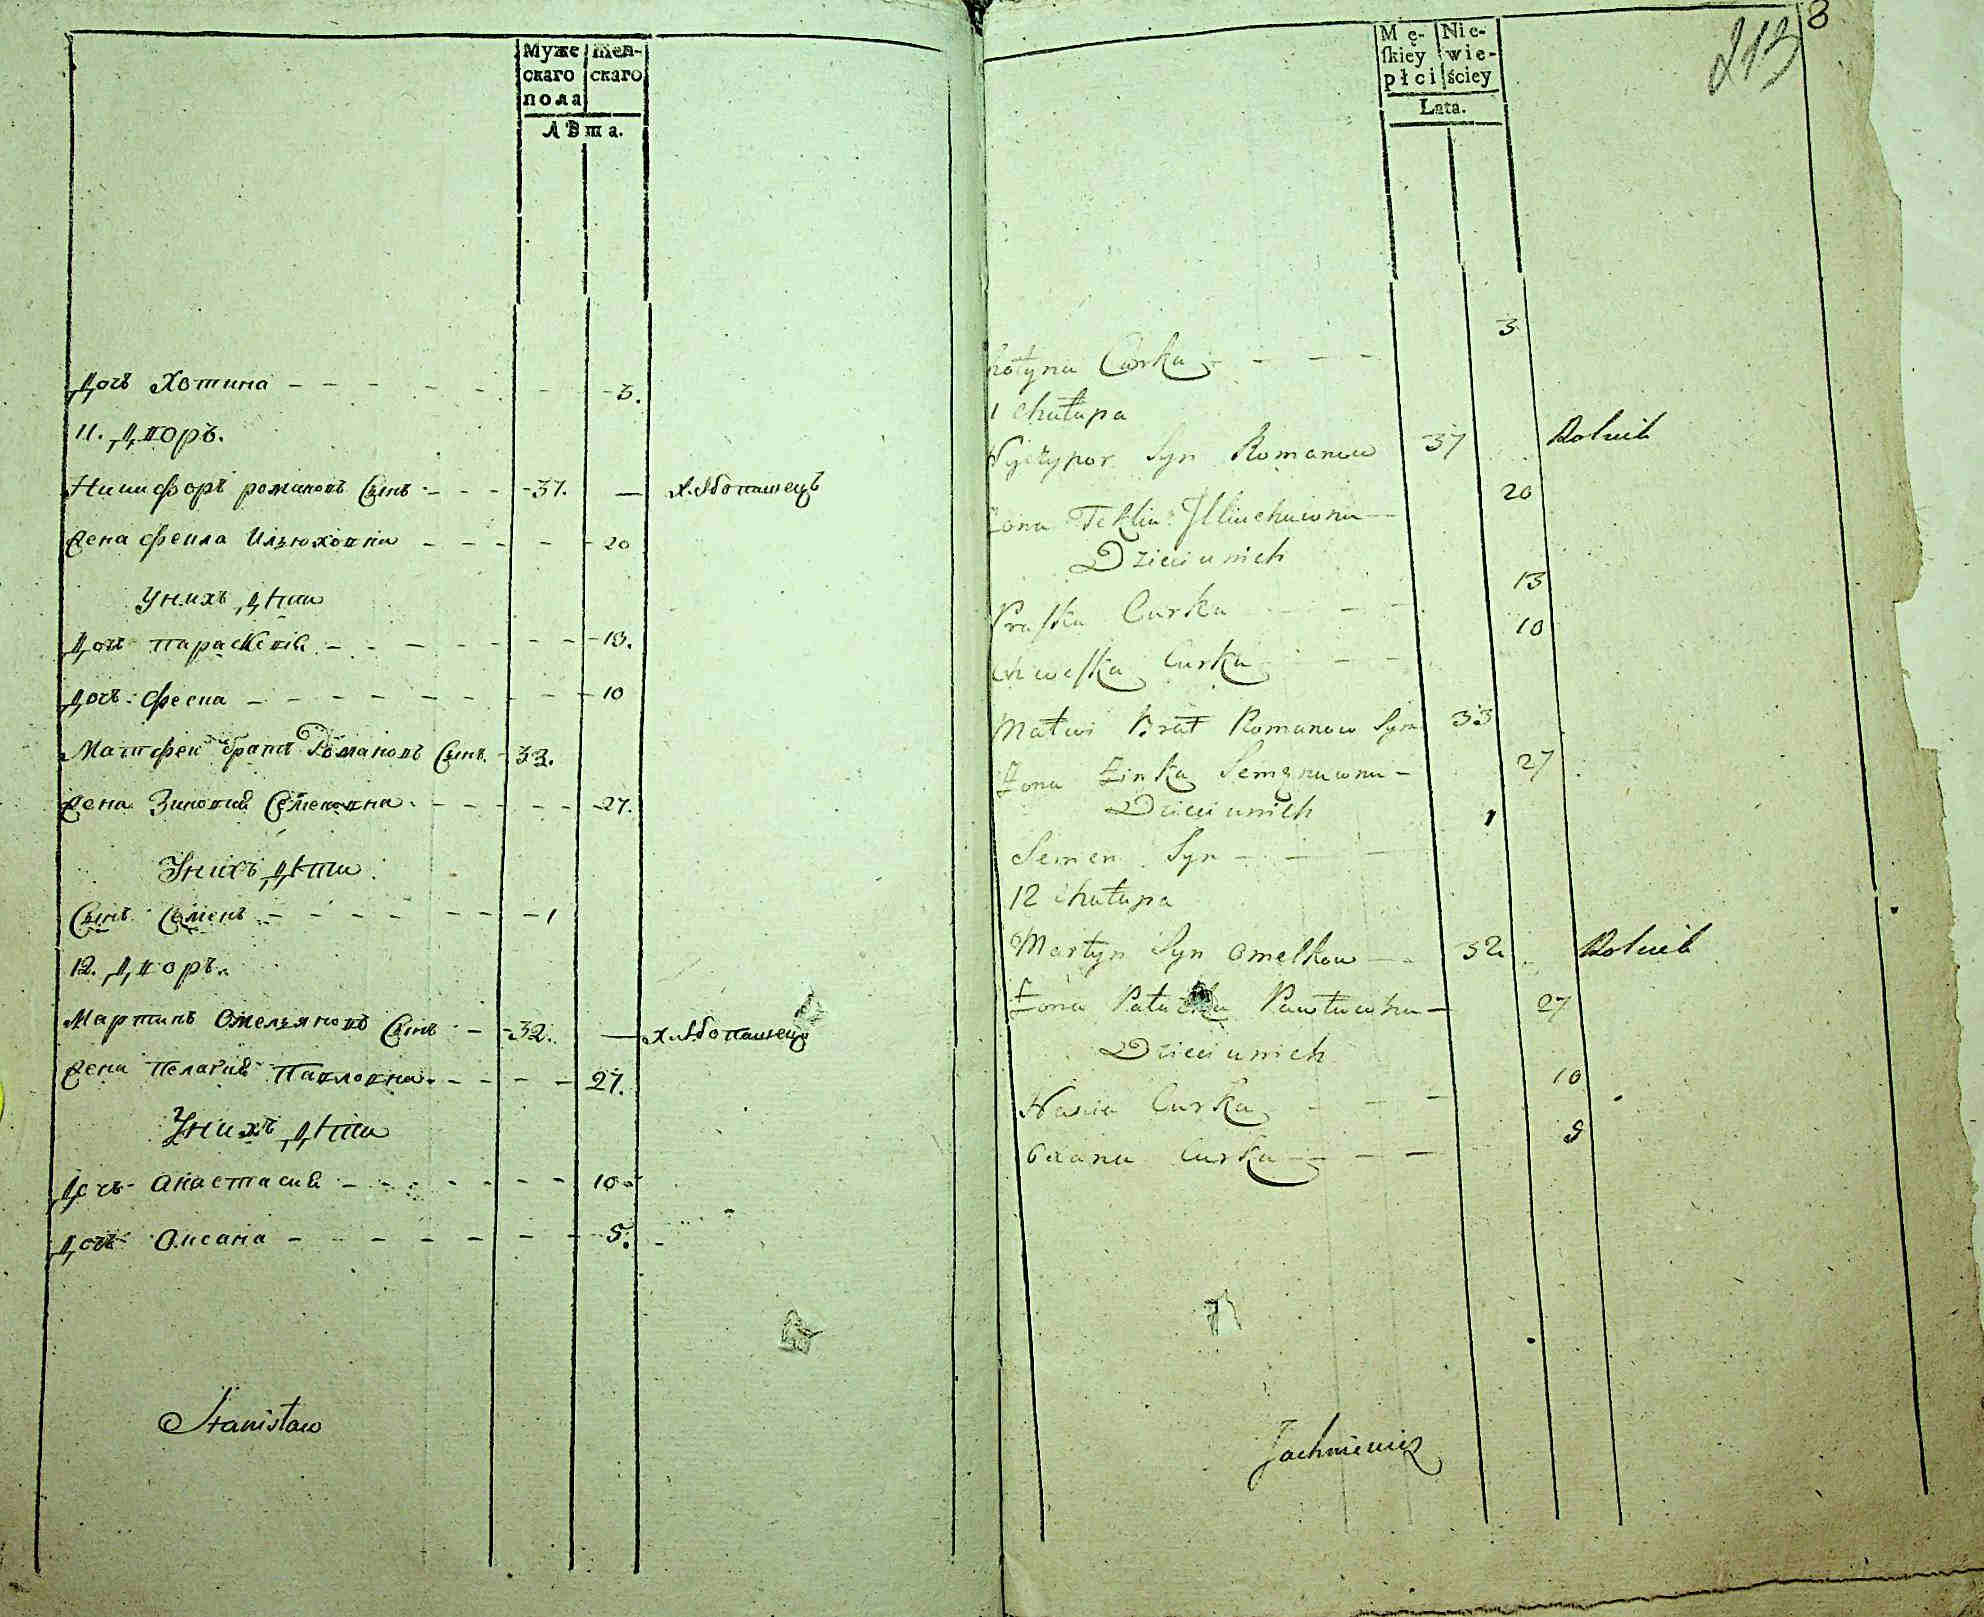 Муже Жен-
скаго скаго
пола
Лѣта.
Дочь Хотина - - - - - - - - 3.
11. Дворъ.
Никифоръ романовъ Сынъ - - - 37. — хлѣбопашецъ
Жена Фекла Ильюховна - - - - - 20
У нихъ дѣти
Дочь параскевiя - - - - - - - 13.
Дочь Феска - - - - - - - - - 10
Матфей братъ Романовъ Сынъ - 33.
Жена Зиновия Семеновна - - - - - - 27.
У нихъ дѣти
Сынъ Семенъ - - - - - - - - 1
12. Дворъ.
Мартинъ Омельяновъ Сынъ - - 32. — хлѣбопашецъ
Жена Пелагия Павловна - - - - 27.
У нихъ дѣти
Дочь Анастасия - - - - - - - 10
Дочь Оксана - - - - - - - - 5.
Stanisław
Mę- Nie-
ſkiey wie-
płci ściey
Lata.
213
8
hotyna Curka - - - - 3
1 Chałupa
Nyczypor Syn Romanow 37 Rolnik
żona Tekla Illiuchowna — 20
Dzieci u nich
Praſka Curka - - - 13
Curka - - - 10
Matwi Brat Romanow Syn 33
Żona Żinka - 27
Dzieci u nich
Semen Syn - - - 1
12 Chałupa
Martyn Syn Omelkow - - 32 Rolnik
Żona Pawłuwna - 27
Dzieci u nich
Nascia Curka - - - 10
Oxana Curka - - - 5
Jachniewicz